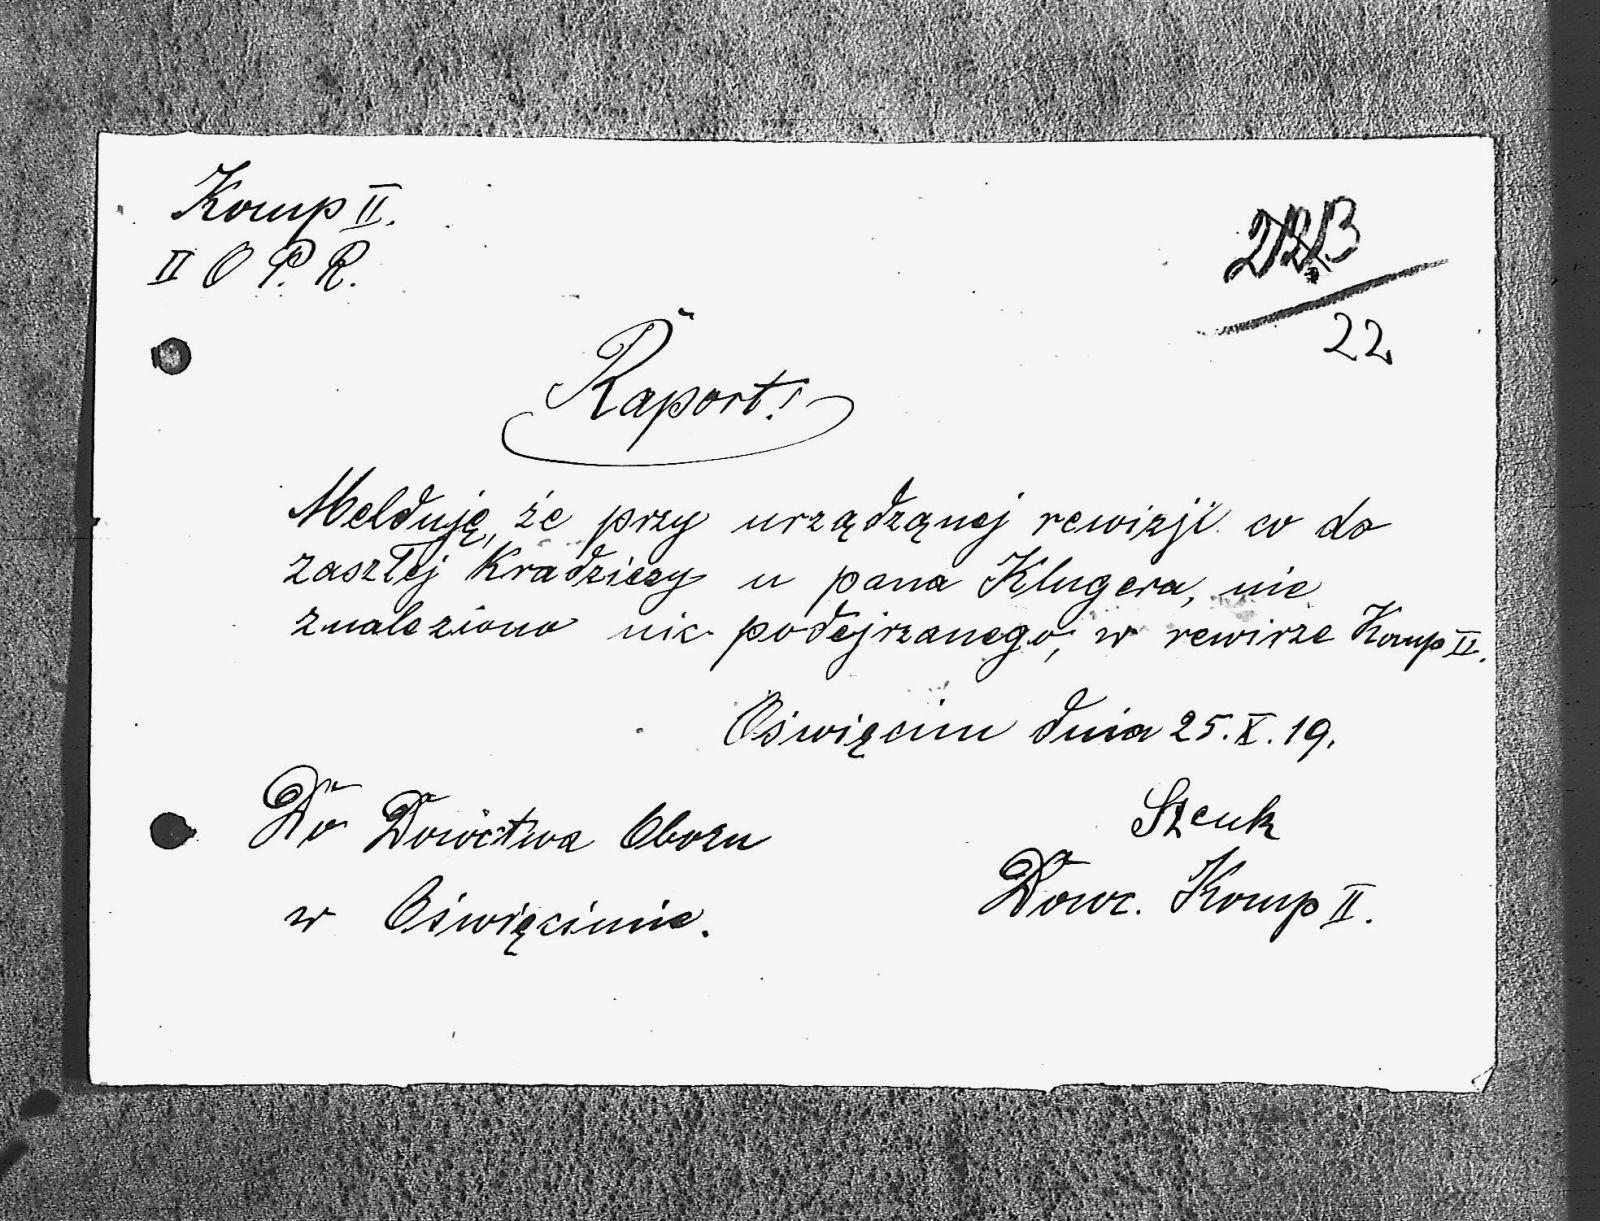 Komp II.
II O P. R.
22
Raport!
Melduję, że przy urządząnej rewizji co do
zaszłej Kradzieży u pana Klugera, nie
znaleziono nic podejrzanego, w rewirze Komp II.
Oświęcim dnia 25.X.19.
Do Dowctwa Obozu
w Oświęcimie.
Szcuk
Dowc. Komp II.